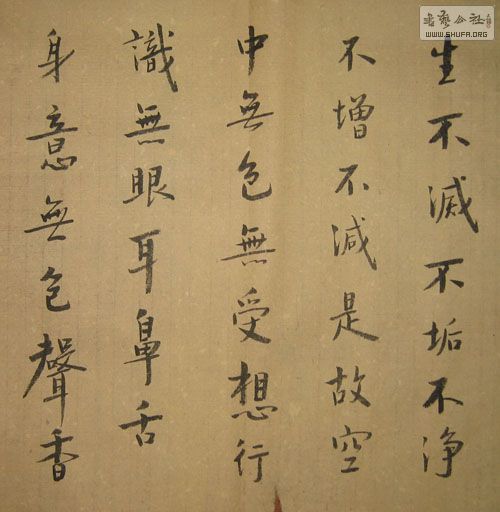 生不滅不垢不净
不增不減是故空
中無色無受想行
識無眼耳鼻舌
身意無色聲香
書藝公社
WWW.SHUFA.ORG